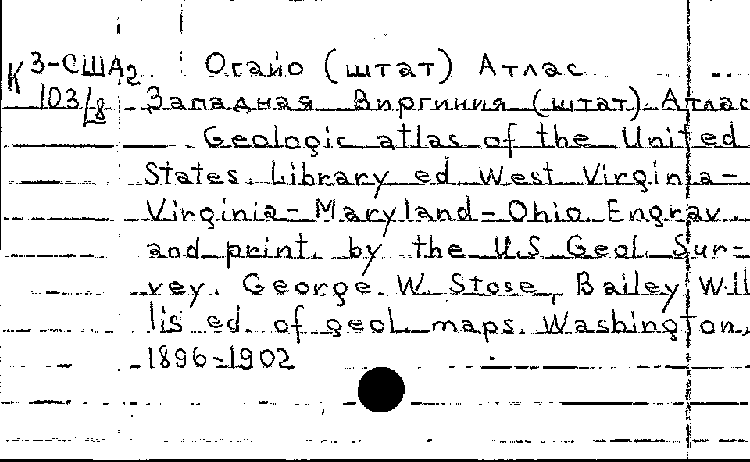 К 3-США2 Огайо (штат) Атлас
103/8 Западная Виргиния (штат) Атлас
Geologic atlas of the United
States. Library ed West Virginia-
Virginia-Maryland-Ohio. Engrav.
and print. by the U.S Geol. Sur-
vey. George. W. Stose, Bailey Wil
lis ed. of geol. maps. Washington,
1896-1902